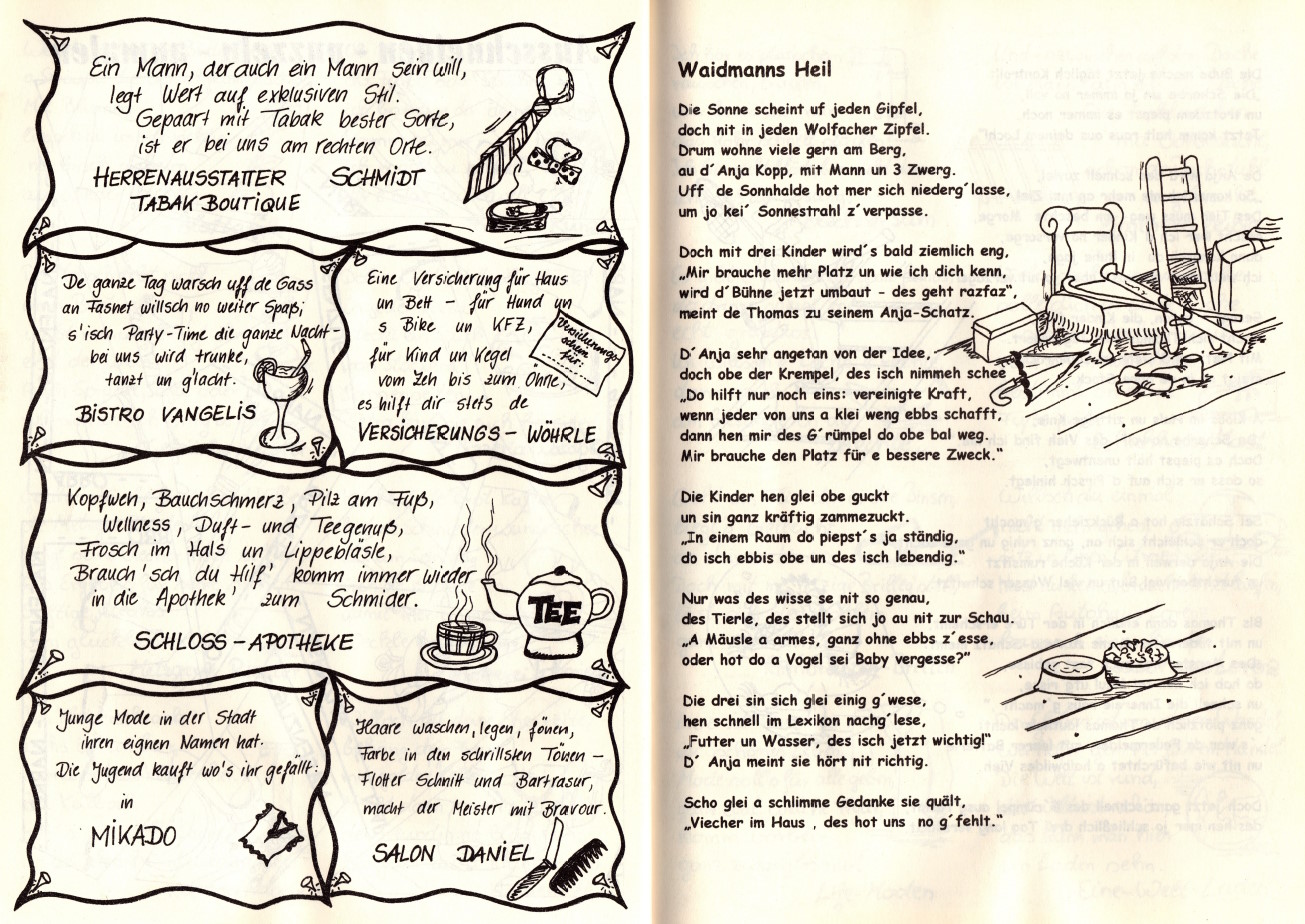 Ein Mann, der auch ein Mann sein will,
legt Wert auf exklusiven Stil.
Gepaart mit Tabak bester Sorte,
ist er bei uns am rechten Orte.
HERRENAUSSTATTER SCHMIDT
TABAK BOUTIQUE
De ganze Tag warsch uff de Gass
an Fasnet willsch no weiter Spaß;
s'isch Party-Time die ganze Nacht -
bei uns wird trunke,
tanzt un g'lacht.
BISTRO VANGELIS
Eine Versicherung für Haus
un Bett - für Hund un
s Bike un KFZ,
für Kind un Kegel
vom Zeh bis zum Öhrle,
es hilft dir stets de
VERSICHERUNGS - WÖHRLE
Versicherungs-
schein
für:
Kopfweh, Bauchschmerz, Pilz am Fuß,
Wellness, Duft- und Teegenuß,
Frosch im Hals un Lippebläsle,
Brauch'sch du Hilf' komm immer wieder
in die Apothek' zum Schmider.
SCHLOSS - APOTHEKE
TEE
Junge Mode in der Stadt
ihren eignen Namen hat.
Die Jugend kauft wo's ihr gefällt:
in
MIKADO
Haare waschen, legen, fönen,
Farbe in den schrillsten Tönen -
Flotter Schnitt und Bartrasur,
macht der Meister mit Bravour.
SALON DANIEL
Waidmanns Heil
Die Sonne scheint uf jeden Gipfel,
doch nit in jeden Wolfacher Zipfel.
Drum wohne viele gern am Berg,
au d´Anja Kopp, mit Mann un 3 Zwerg.
Uff de Sonnhalde hot mer sich niederg´lasse,
um jo kei´ Sonnestrahl z´verpasse.
Doch mit drei Kinder wird´s bald ziemlich eng,
„Mir brauche mehr Platz un wie ich dich kenn,
wird d´Bühne jetzt umbaut - des geht razfaz",
meint de Thomas zu seinem Anja-Schatz.
D´Anja sehr angetan von der Idee,
doch obe der Krempel, des isch nimmeh schee
„Do hilft nur noch eins: vereinigte Kraft,
wenn jeder von uns a klei weng ebbs schafft,
dann hen mir des G´rümpel do obe bal weg.
Mir brauche den Platz für e bessere Zweck."
Die Kinder hen glei obe guckt
un sin ganz kräftig zammezuckt.
„In einem Raum do piepst´s ja ständig,
do isch ebbis obe un des isch lebendig."
Nur was des wisse se nit so genau,
des Tierle, des stellt sich jo au nit zur Schau.
„A Mäusle a armes, ganz ohne ebbs z´esse,
oder hot do a Vogel sei Baby vergesse?"
Die drei sin sich glei einig g´wese,
hen schnell im Lexikon nachg´lese,
„Futter un Wasser, des isch jetzt wichtig!"
D´ Anja meint sie hört nit richtig.
Scho glei a schlimme Gedanke sie quält,
„Viecher im Haus , des hot uns no g´fehlt."